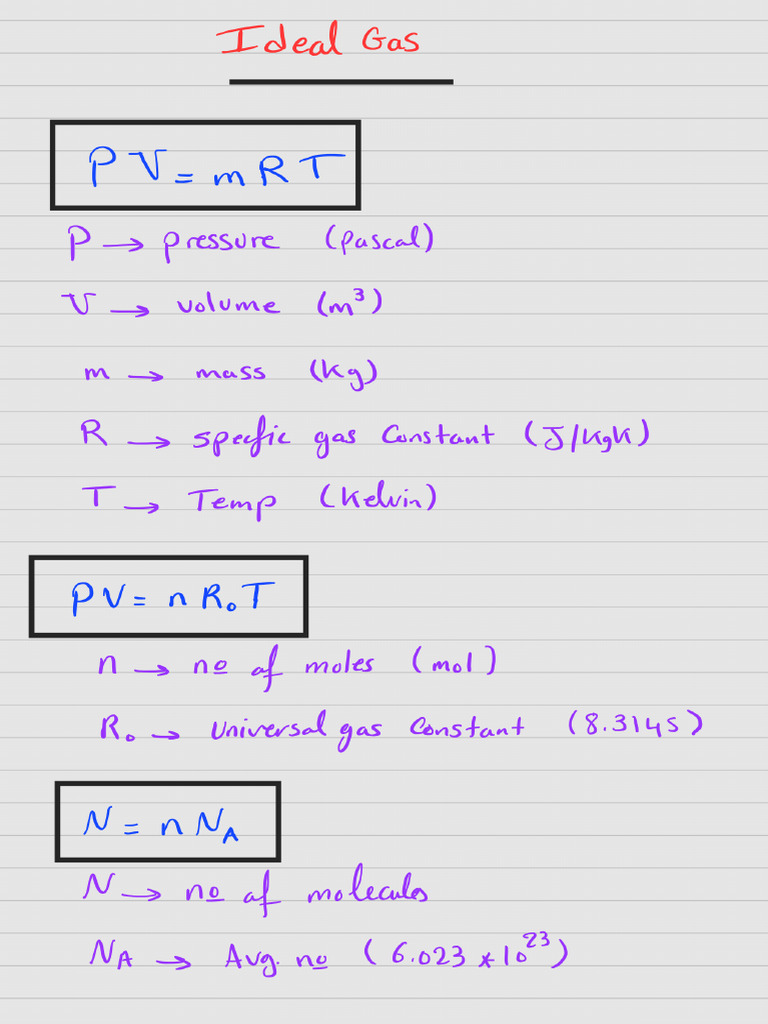 Ideal Gas
PV = mRT
P → pressure (pascal)
V → volume (m³)
m → mass (kg)
R → specfic gas Constant (J/kgK)
T → Temp (Kelvin)
PV = nR₀T
n → no of moles (mol)
R₀ → Universal gas Constant (8.3145)
N = n N_A
N → no of molecules
N_A → Avg. no (6.023 * 10²³)